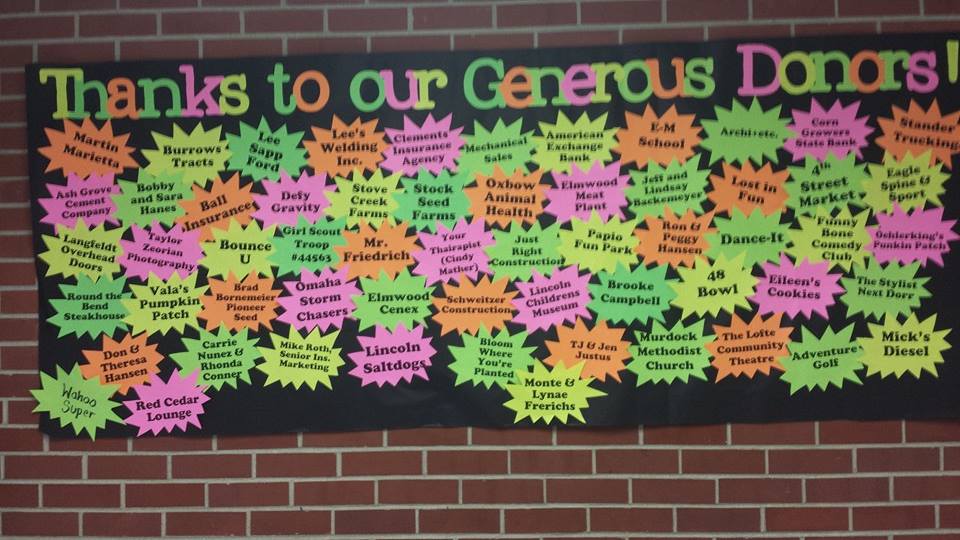 Thanks to our Generous Donors!
Martin
Marietta
Burrows
Tracts
Lee
Sapp
Ford
Lee's
Welding
Inc.
Clements
Insurance
Agency
Mechanical
Sales
American
Exchange
Bank
E-M
School
Archi-etc.
Corn
Growers
State Bank
Stander
Trucking
Ash Grove
Cement
Company
Bobby
and Sara
Hanes
Ball
Insurance
Defy
Gravity
Stove
Creek
Farms
Stock
Seed
Farms
Oxbow
Animal
Health
Elmwood
Meat
Plant
Jeff and
Lindsay
Backemeyer
Lost in
Fun
4th
Street
Market
Eagle
Spine &
Sport
Langfeldt
Overhead
Doors
Taylor
Zeorian
Photography
Bounce
U
Girl Scout
Troop
#44563
Mr.
Friedrich
Your
Thairapist
(Cindy
Mather)
Just
Right
Construction
Papio
Fun Park
Ron &
Peggy
Hansen
Dance-It
Funny
Bone
Comedy
Club
Oehlerking's
Punkin Patch
Round the
Bend
Steakhouse
Vala's
Pumpkin
Patch
Brad
Bornemeier
Pioneer
Seed
Omaha
Storm
Chasers
Elmwood
Cenex
Schweitzer
Construction
Lincoln
Childrens
Museum
Brooke
Campbell
48
Bowl
Eileen's
Cookies
The Stylist
Next Dorr
Don &
Theresa
Hansen
Carrie
Nunez &
Rhonda
Conner
Mike Roth,
Senior Ins.
Marketing
Lincoln
Saltdogs
Bloom
Where
You're
Planted
TJ & Jen
Justus
Murdock
Methodist
Church
The Lofte
Community
Theatre
Adventure
Golf
Mick's
Diesel
Wahoo
Super
Red Cedar
Lounge
Monte &
Lynae
Frerichs